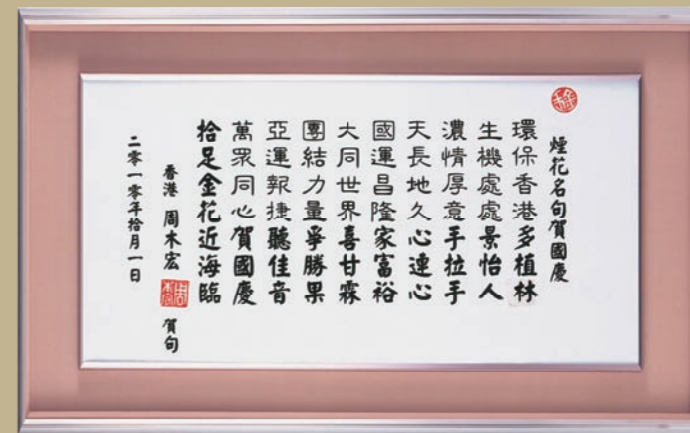 煙花名句賀國慶
環保香港多植林
生機處處景怡人
濃情厚意手拉手
天長地久心連心
國運昌隆家富裕
大同世界喜甘霖
團結力量爭勝果
亞運報捷聽佳音
萬眾同心賀國慶
拾足金花近海臨
香港 周木宏 賀句
二零一零年拾月一日